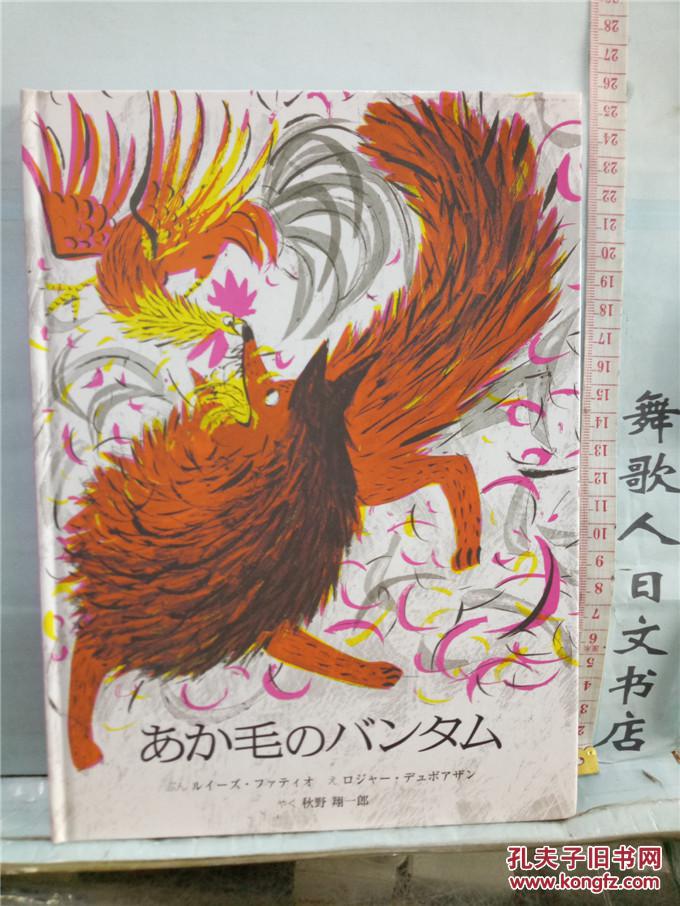 あか毛のバンタム
ぶん ルイーズ・ファティオ え ロジャー・デュボアザン
やく 秋野 翔一郎
舞歌人日文书店
28
27
26
25
24
23
22
21
20
19
18
17
16
15
14
13
12
11
10
9
8
7
6
5
4
3
2
孔夫子旧书网
www.kongfz.com